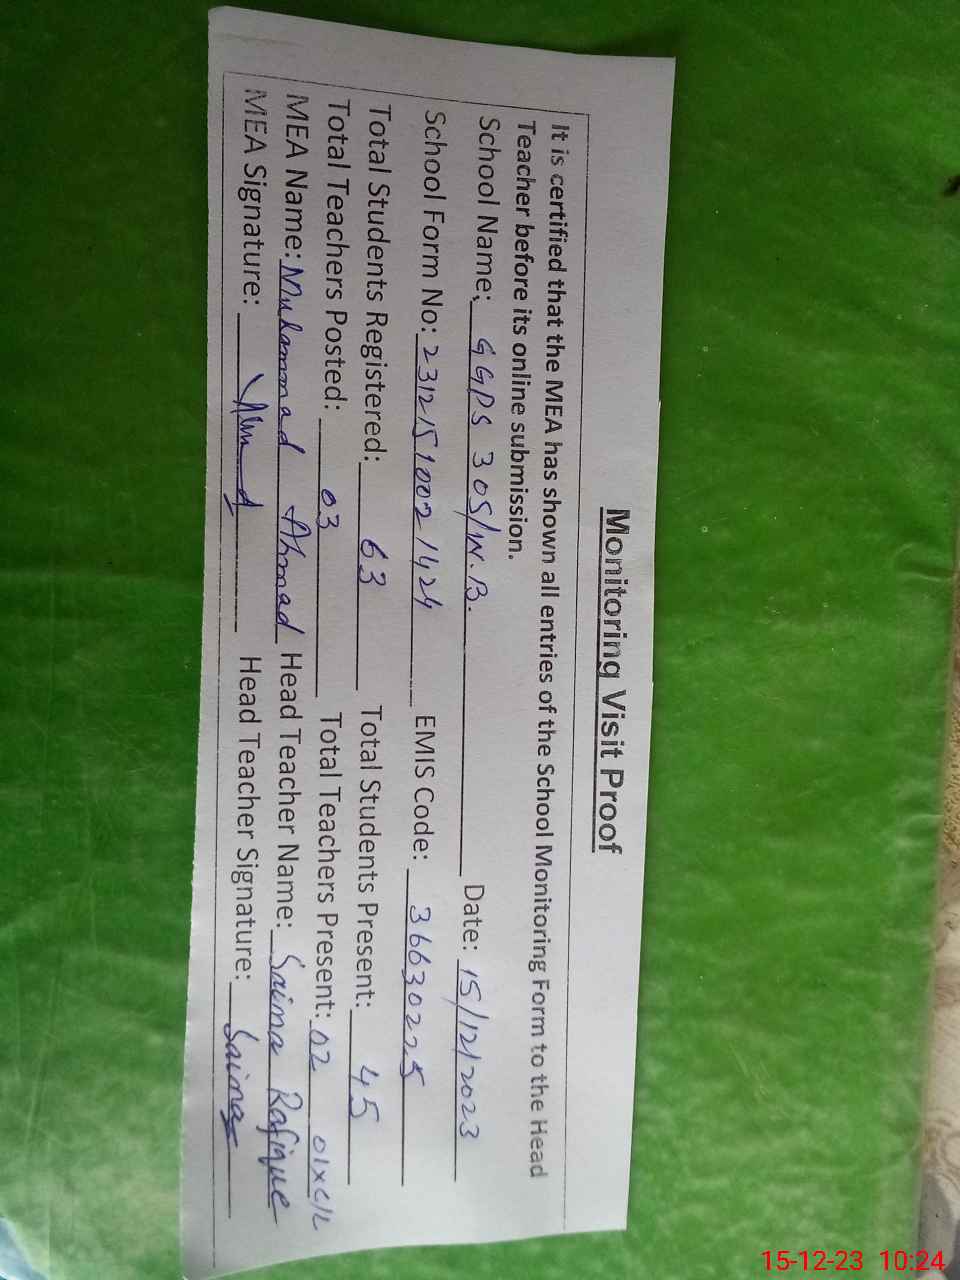 Monitoring Visit Proof
It is certified that the MEA has shown all entries of the School Monitoring Form to the Head
Teacher before its online submission.
School Name: GGPS 305/W.B. Date: 15/12/2023
School Form No: 23121510021424 EMIS Code: 36630225
Total Students Registered: 63 Total Students Present: 45
Total Teachers Posted: 03 Total Teachers Present: 02 01xC/L
MEA Name: Muhammad Ahmad Head Teacher Name: Saima Rafique
MEA Signature: Head Teacher Signature: Saima
15-12-23 10:24